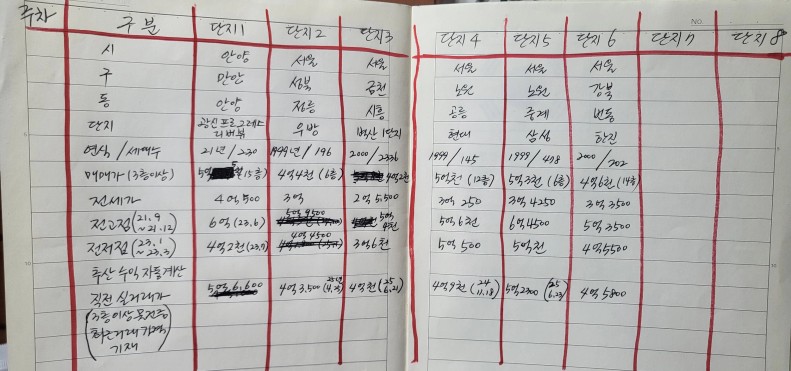 주차 구분 단지1 단지2 단지3 단지4 단지5 단지6 단지7 단지8
NO.
시 안양 서울 서울 서울 서울 서울
구 만안 성북 금천 노원 노원 강북
동 안양 정릉 시흥 공릉 중계 번동
단지 광신프로그레스 리버뷰 우방 벽산 1단지 현대 삼성 한진
연식/세대수 21년/230 1999년/196 2000/2336 1999/145 1999/478 2000/202
매매가 (3층이상) (15층) 4억4천 (6층) 4억2천 5억천 (12층) 5억3천 (6층) 4억6천 (14층)
전세가 4억500 3억 2억5,500 3억250 3억4250 3억3500
전고점 (21.9 ~21.12) 6억 (23.6) 5억9500 5억 5억6천 6억4500 5억3500
전저점 (23.1 ~23.3) 4억2천 (23.7) 4억4500 3억6천 5억500 5억천 4억5500
추산 수익 자동계산
직전 실거래가 5억6,600 4억3,500 4억천 (25 6.21) 4억9천 (24 11.18) 5억2300 (25 6.23) 4억5800
(3층이상 물건중
최근거래가격
기재)